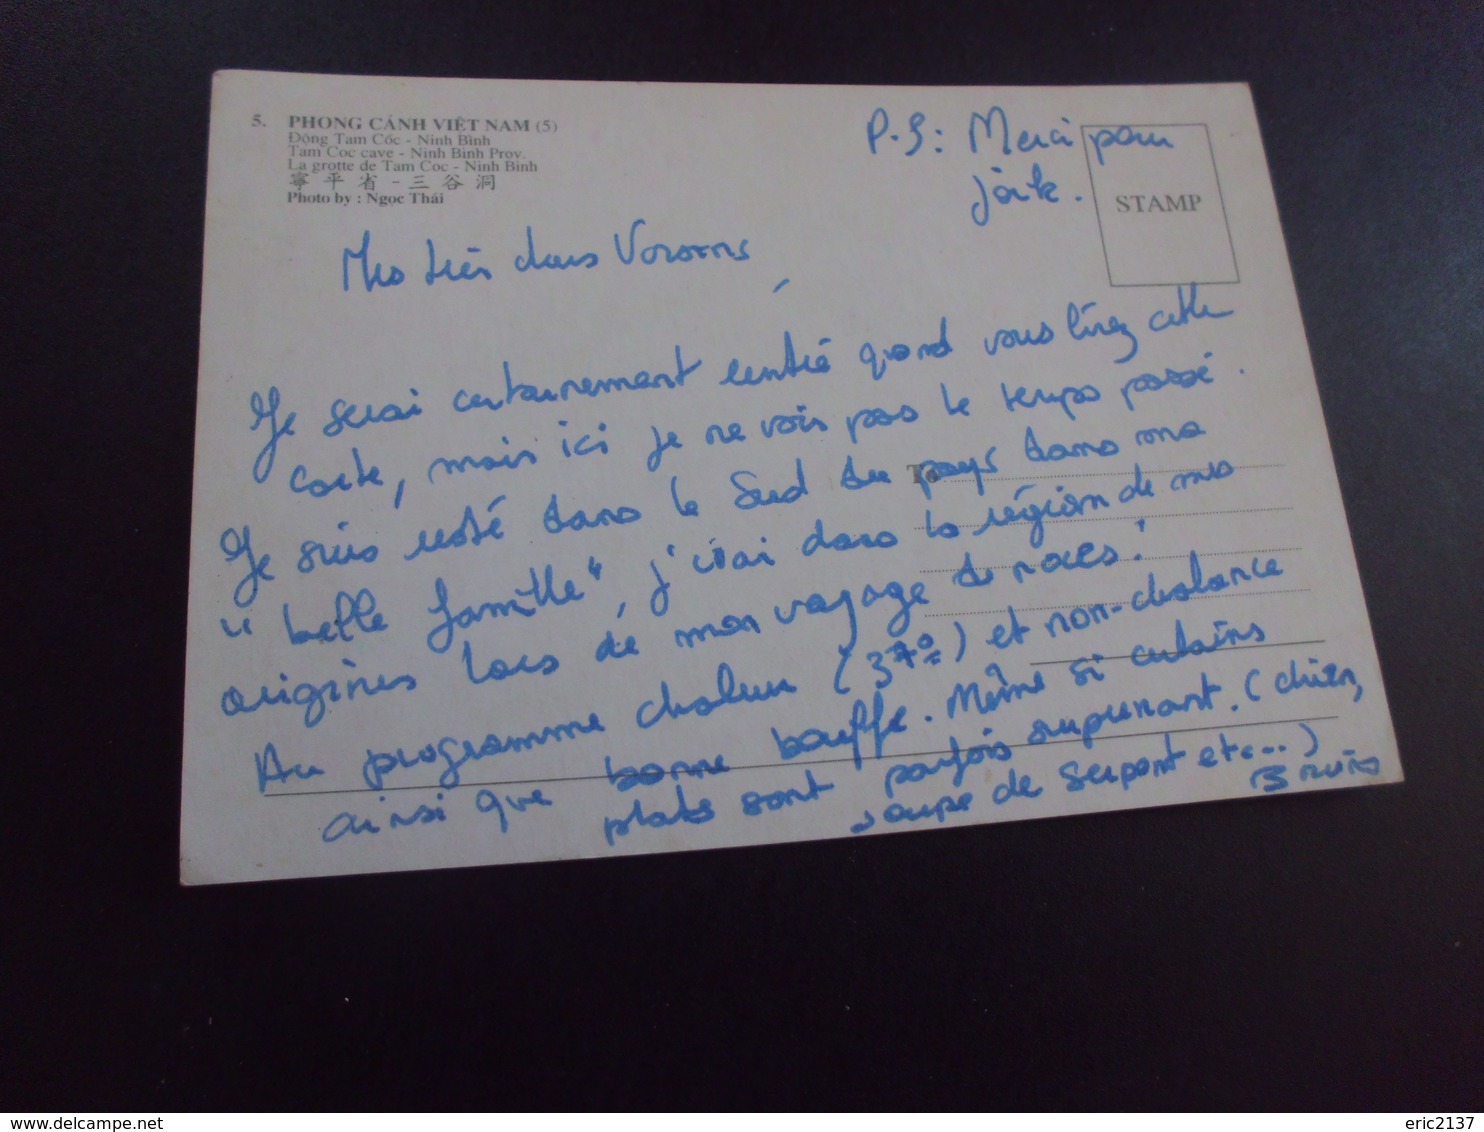 5. PHONG CẢNH VIỆT NAM (5)
Động Tam Cốc - Ninh Bình
Tam Coc cave - Ninh Binh Prov.
La grotte de Tam Coc - Ninh Binh
寧 平 省 - 三 谷 洞
Photo by : Ngọc Thái
P.S: Merci pour
STAMP
Mes très chers Voisins,
Je serai certainement rentré quand vous lirez cette
carte, mais ici je ne vois pas le temps passé.
To
Je suis resté dans le Sud du pays dans ma
"belle famille", j'irai dans la région de mes
origines lors de mon voyage de noces!
Au programme chaleur (37°) et non-chalance
ainsi que bonne bouffe. Même si certains
plats sont parfois surprenant. (chien,
soupe de serpent etc...)
Bruno
eric2137